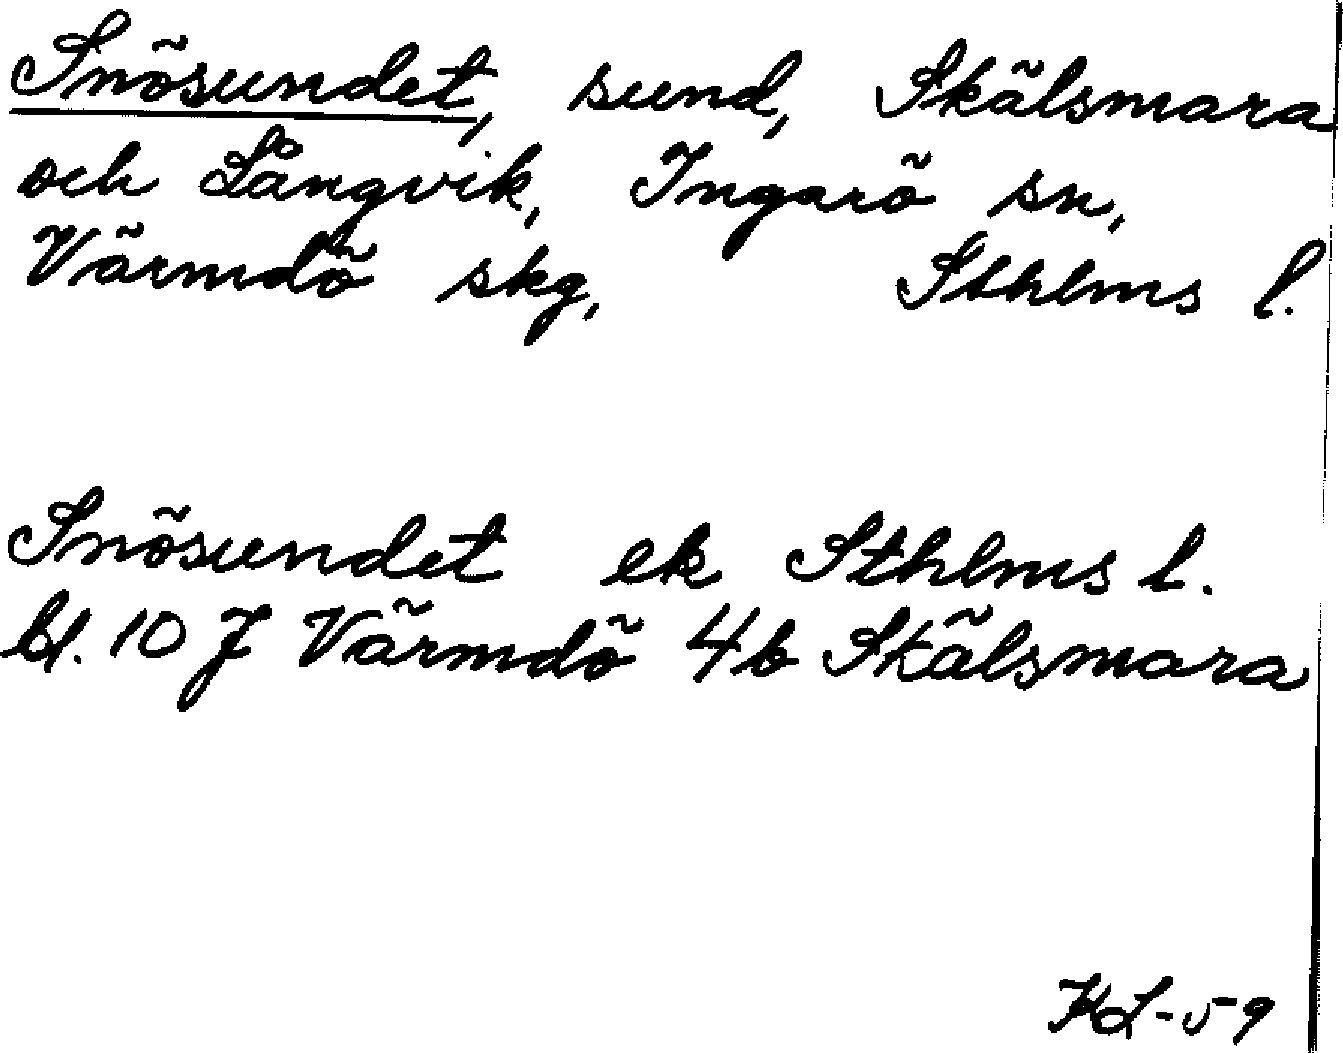 Snösundet, sund, Skälsmara
och Långvik, Ingarö sn,
Värmdö skg, Sthlms l.
Snösundet ek Sthlms l.
bl. 10 J Värmdö 4b Skälsmara
KL-59